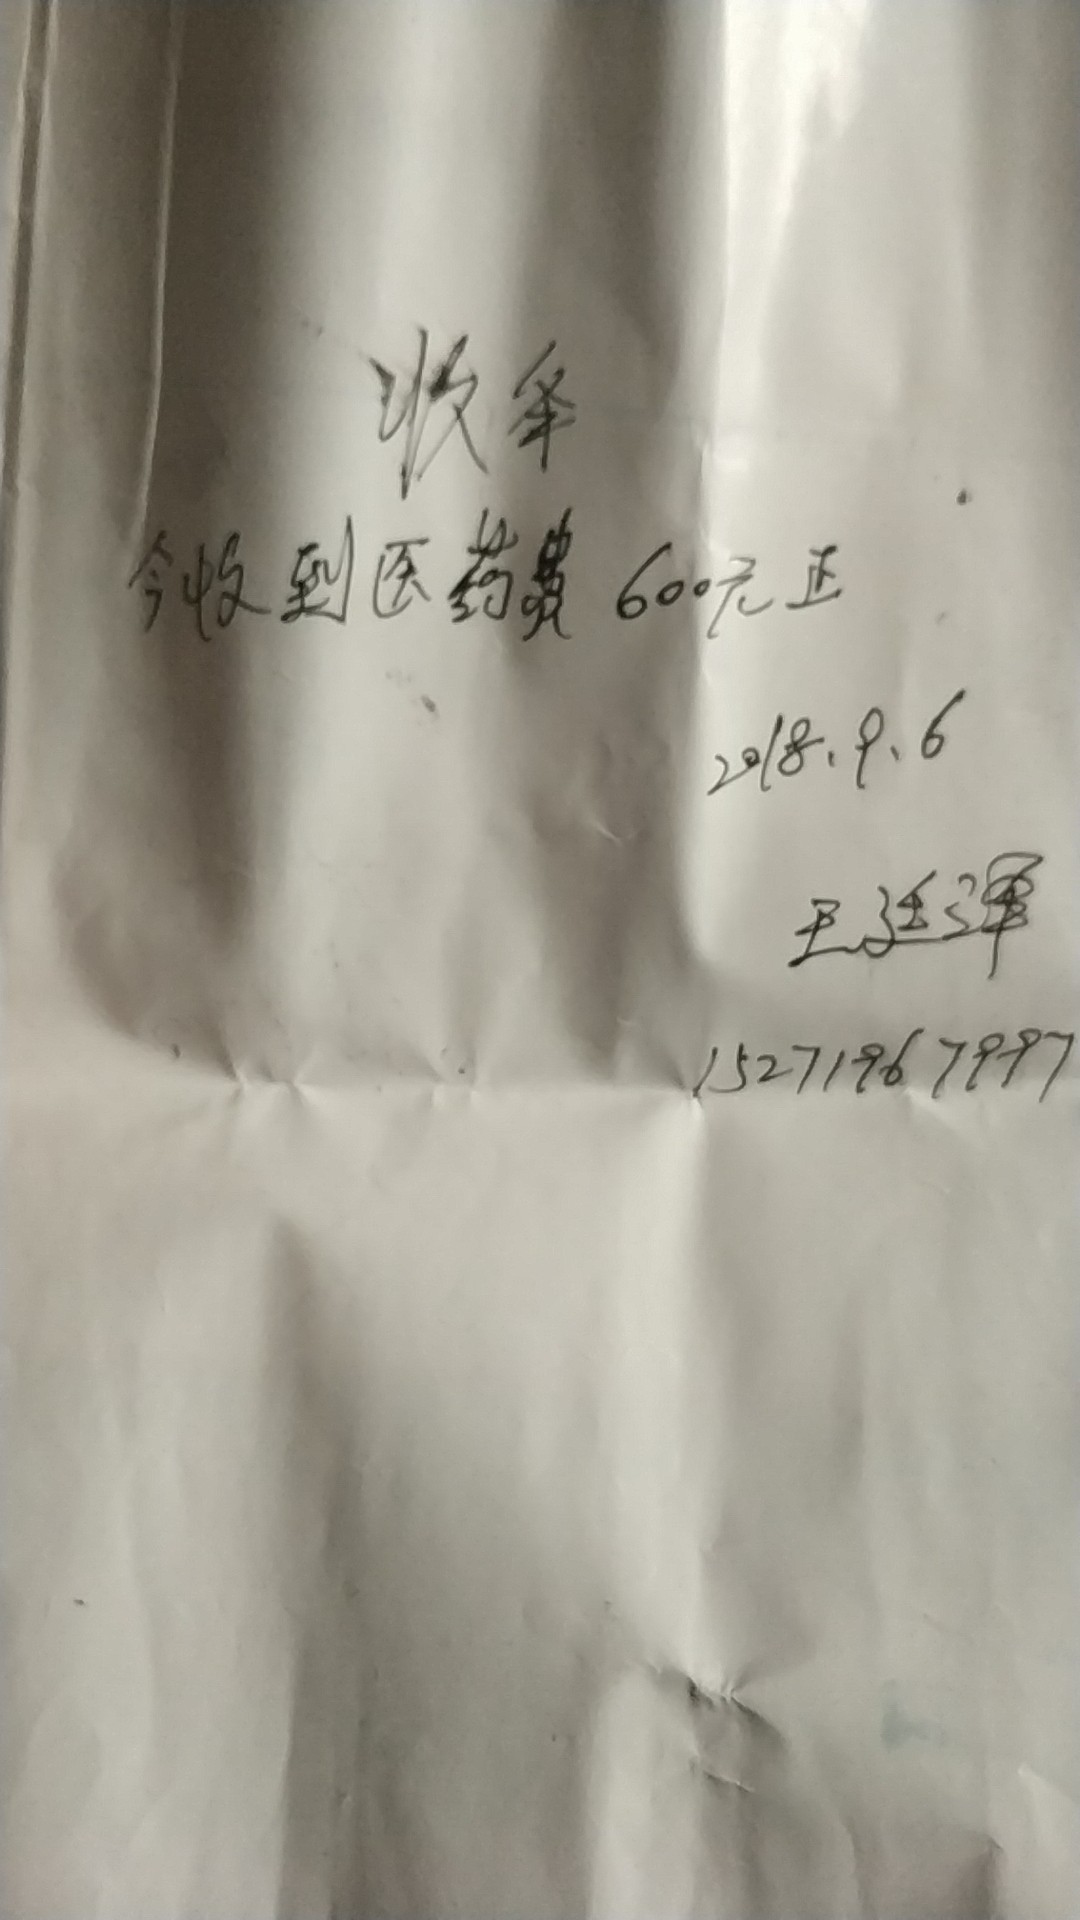 收条
今收到医药费600元正
2018.9.6
王廷浑
15271967997